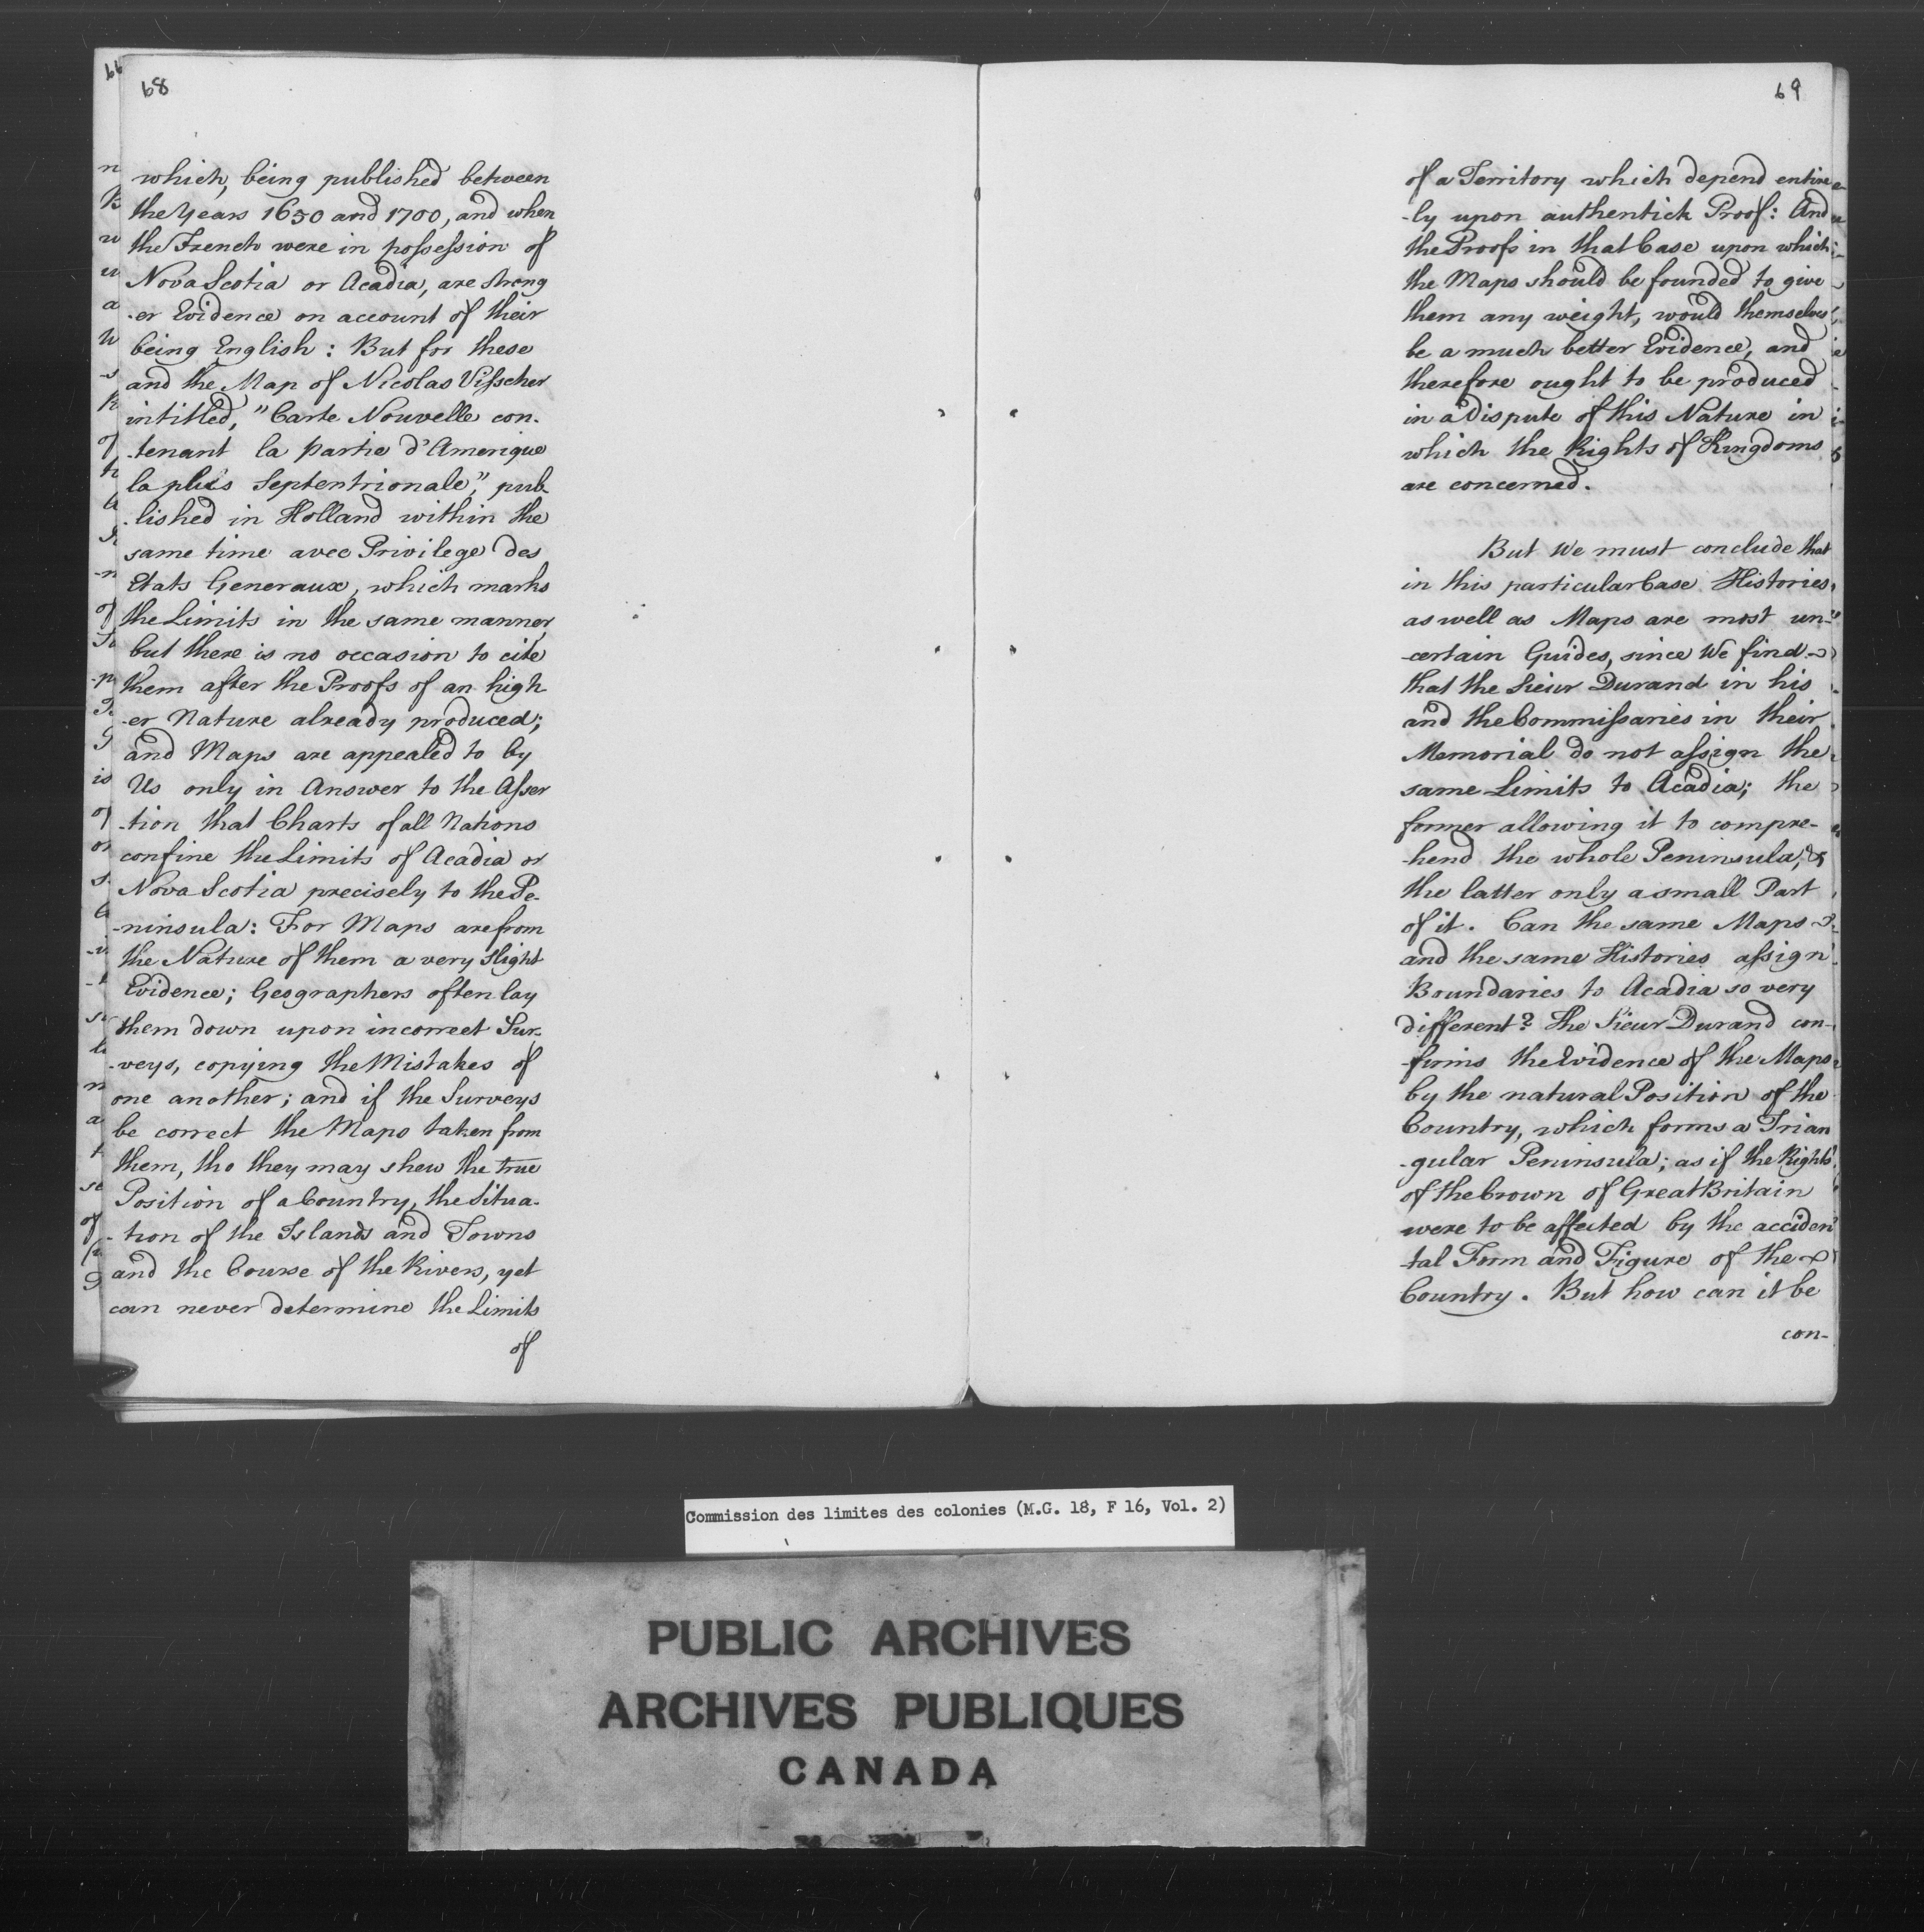 68
which, being published between
the Years 1650 and 1700, and when
the French were in possession of
Nova Scotia or Acadia, are strong
-er Evidence on account of their
being English: But for these
and the Map of Nicolas Visscher
intitled, "Carte Nouvelle con-
-tenant la partie d'Amerique
la plus Septentrionale," pub-
-lished in Holland within the
same time avec Privilege des
Etats Generaux, which marks
the Limits in the same manner,
but there is no occasion to cite
them after the Proofs of an high
-er Nature already produced;
and Maps are appealed to by
Us only in Answer to the Asser
-tion that Charts of all Nations
confine the Limits of Acadia or
Nova Scotia precisely to the Pe-
-ninsula: For Maps are from
the Nature of them a very slight
Evidence; Geographers often lay
them down upon incorrect Sur-
-veys, copying the Mistakes of
one another; and if the Surveys
be correct the Maps taken from
them, tho they may shew the true
Position of a Country, the Situa-
-tion of the Islands and Towns
and the Course of the Rivers, yet
can never determine the Limits
of
69
of a Territory which depend entire
-ly upon authentick Proof: And
the Proofs in that Case upon which
the Maps should be founded to give
them any weight, would themselves
be a much better Evidence, and
therefore ought to be produced
in a dispute of this Nature in
which the Rights of Kingdoms
are concerned.
But We must conclude that
in this particular Case Histories
as well as Maps are most un-
-certain Guides, since We find
that the Sieur Durand in his
and the Commissaries in their
Memorial do not assign the
same Limits to Acadia; the
former allowing it to compre-
-hend the whole Peninsula, &
the latter only a small Part
of it. Can the same Maps
and the same Histories assign
Boundaries to Acadia so very
different? The Sieur Durand con-
-firms the Evidence of the Maps
by the natural Position of the
Country, which forms a Trian
-gular Peninsula; as if the Rights
of the Crown of Great Britain
were to be affected by the acciden
-tal Form and Figure of the
Country. But how can it be
con-
Commission des limites des colonies (M.G. 18, F 16, Vol. 2)
PUBLIC ARCHIVES
ARCHIVES PUBLIQUES
CANADA